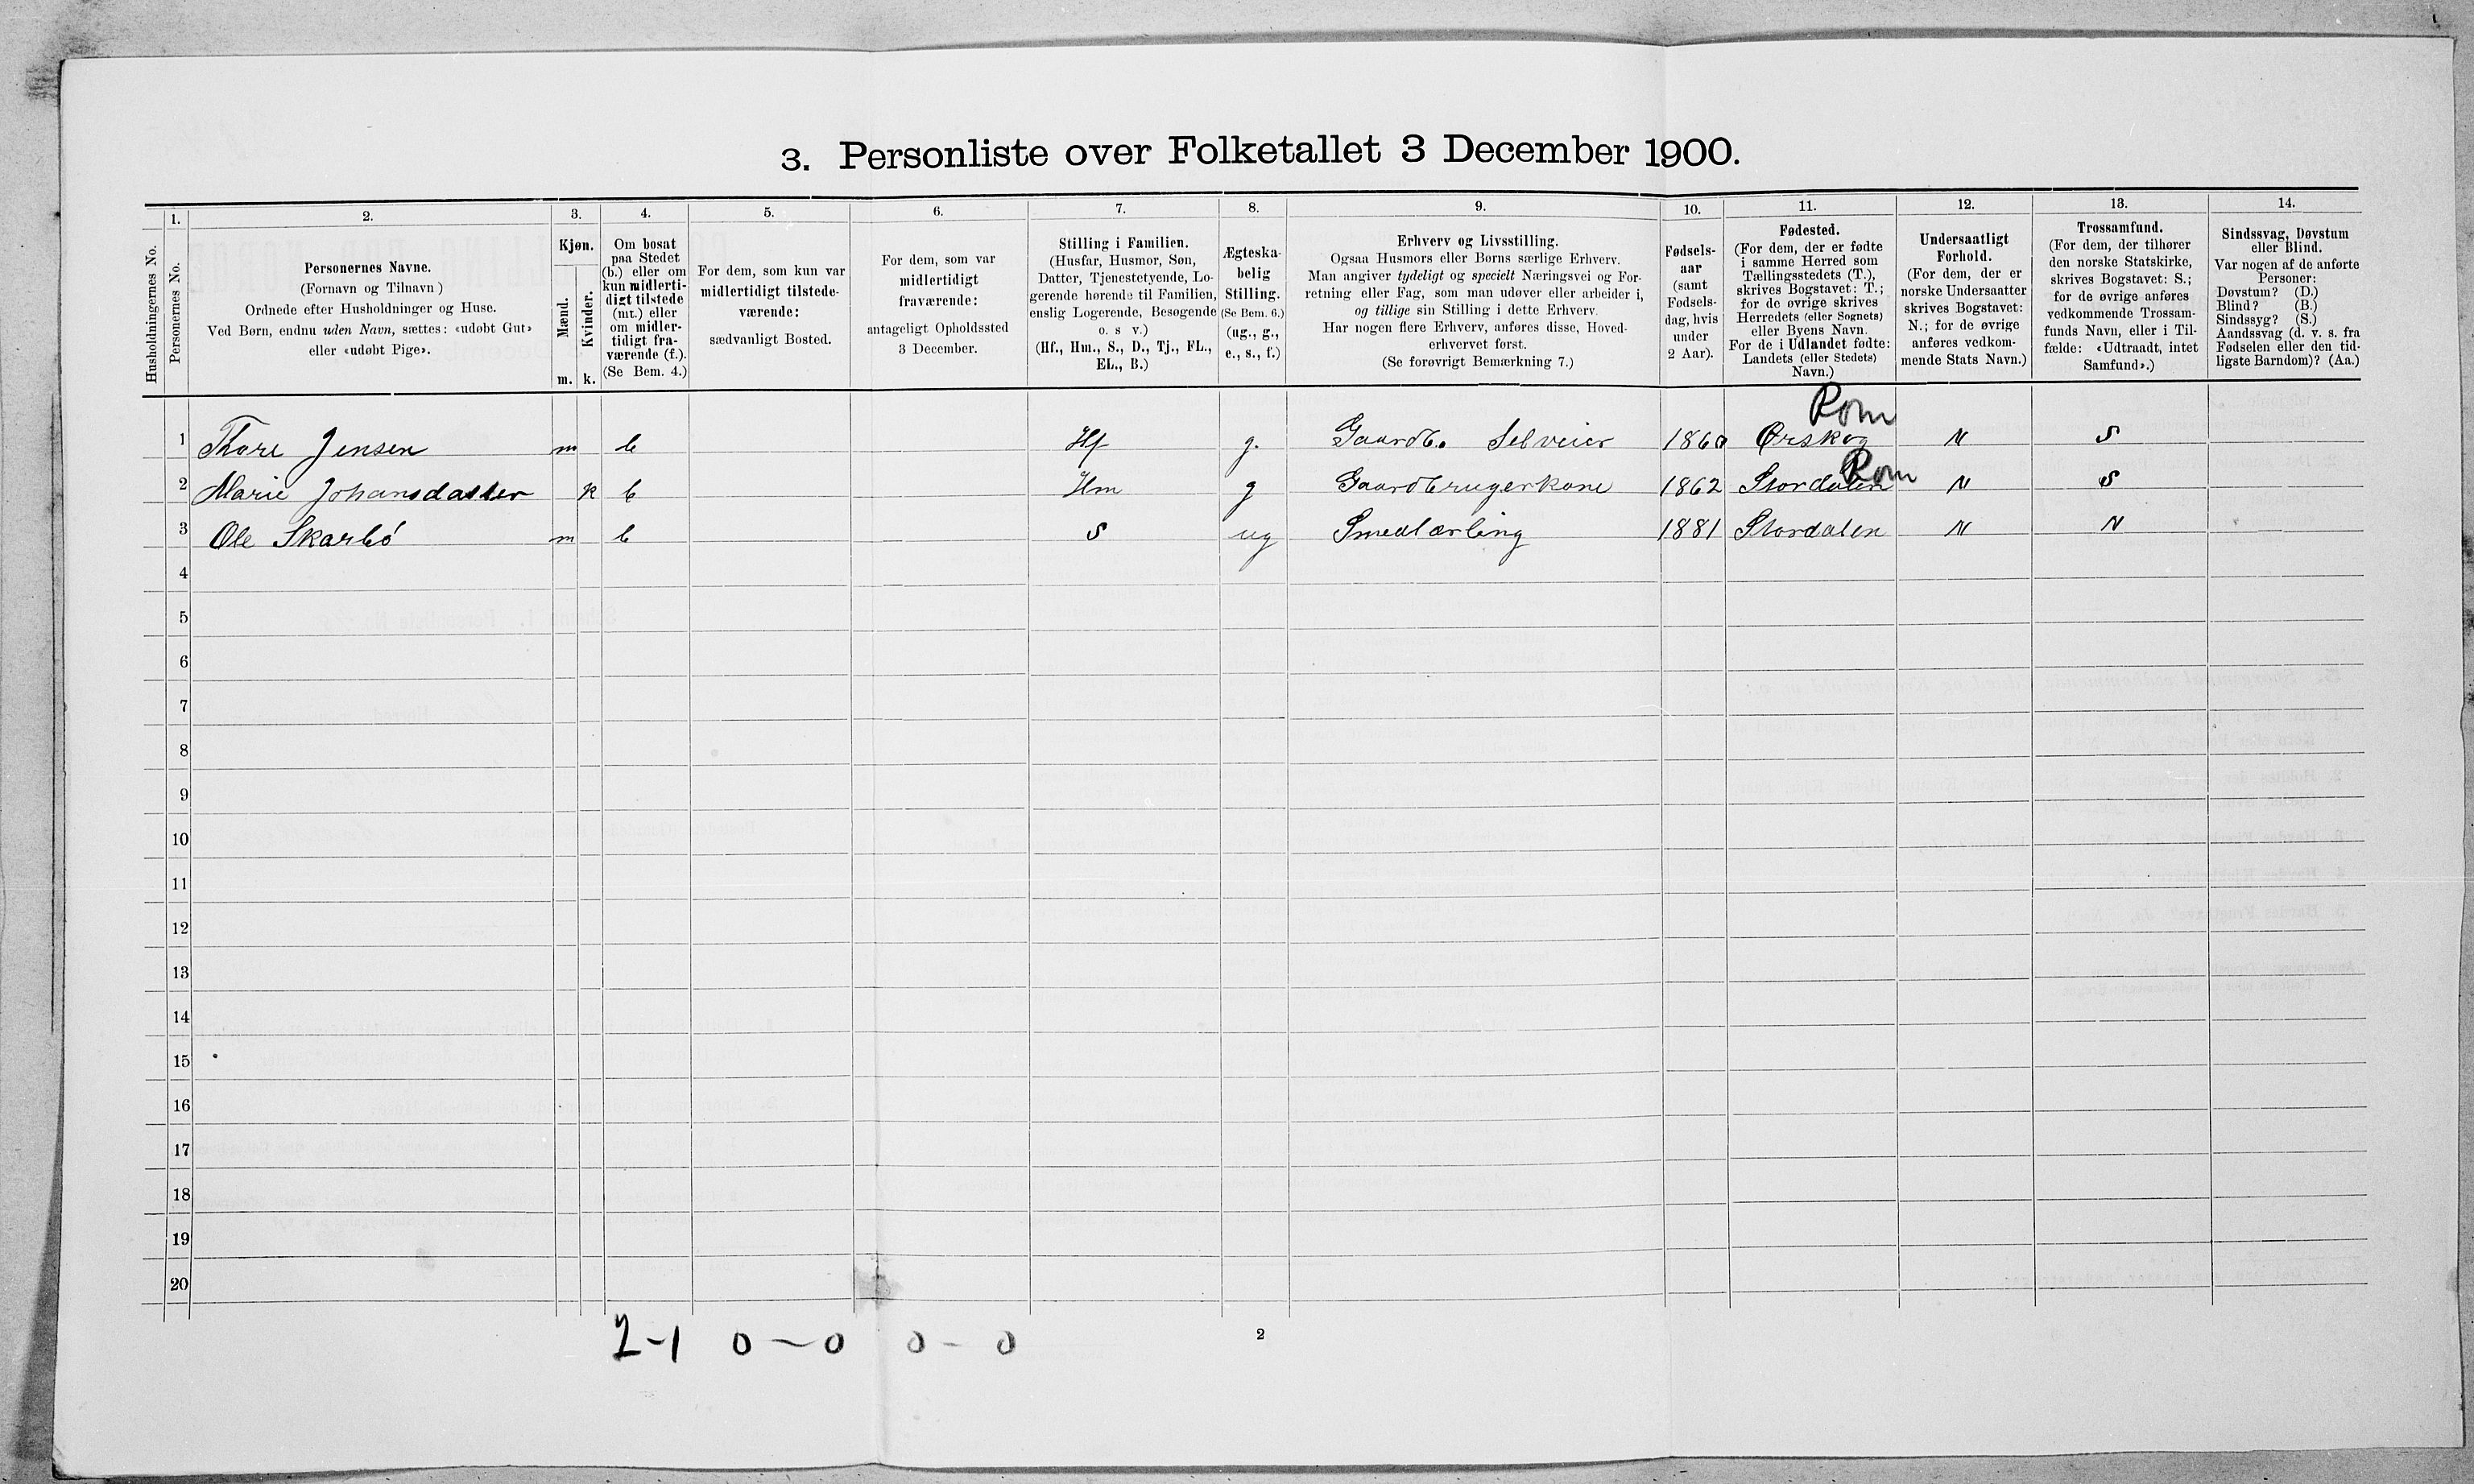 3. Personliste over Folketallet 3 December 1900.
Husholdningernes No.
1.
Personernes No.
2.
Personernes Navne.
(Fornavn og Tilnavn)
Ordnede efter Husholdninger og Huse.
Ved Børn, endnu uden Navn, sættes: «udøbt Gut»
eller «udøbt Pige».
3.
Kjøn.
Mænd.
Kvinder.
m. k.
4.
Om bosat
paa Stedet
(b.) eller om
kun midlerti-
digt tilstede
(mt.) eller
om midler-
tidigt fra-
værende (f.).
(Se Bem. 4.)
5.
For dem, som kun var
midlertidigt tilstede-
værende:
sædvanligt Bosted.
6.
For dem, som var
midlertidigt
fraværende:
antageligt Opholdssted
3 December.
7.
Stilling i Familien.
(Husfar, Husmor, Søn,
Datter, Tjenestetyende, Lo-
gerende hørende til Familien,
enslig Logerende, Besøgende
o. s v.)
(Hf., Hm., S., D., Tj., FL.,
EL., B.)
8.
Ægteska-
belig
Stilling.
(Se Bem. 6.)
(ug., g.,
e., s., f.)
9.
Erhverv og Livsstilling.
Ogsaa Husmors eller Børns særlige Erhverv.
Man angiver tydeligt og specielt Næringsvei og For-
retning eller Fag, som man udøver eller arbeider i,
og tillige sin Stilling i dette Erhverv.
Har nogen flere Erhverv, anføres disse, Hoved-
erhvervet først.
(Se forøvrigt Bemærkning 7.)
10.
Fødsels-
aar
(samt
Fødsels-
dag, hvis
under
2 Aar).
11.
Fødested.
(For dem, der er fødte
i samme Herred som
Tællingsstedets (T.),
skrives Bogstavet: T.;
for de øvrige skrives
Herredets (eller Sognets)
eller Byens Navn.
For de i Udlandet fødte:
Landets (eller Stedets)
Navn.)
12.
Undersaatligt
Forhold.
(For dem, der er
norske Undersaatter
skrives Bogstavet:
N.; for de øvrige
anføres vedkom-
mende Stats Navn.)
13.
Trossamfund.
(For dem, der tilhører
den norske Statskirke,
skrives Bogstavet: S.;
for de øvrige anføres
vedkommende Trossam-
funds Navn, eller i Til-
fælde: «Udtraadt, intet
Samfund».)
14.
Sindssvag, Døvstum
eller Blind.
Var nogen af de anførte
Personer:
Døvstum? (D.)
Blind? (B.)
Sindssyg? (S.)
Aandssvag (d. v. s. fra
Fødselen eller den tid-
ligste Barndom)? (Aa.)
Rom
1 Thore Jensen m b Hf g. Gaardb. Selveier 1860 Ørskog N S
Rom
2 Marie Johansdatter k b Hm g Gaardbrugerkone 1862 Stordalen N S
3 Ole Skarbó m b S ug Smedlærling 1881 Stordalen N N
4
5
6
7
8
9
10
11
12
13
14
15
16
17
18
19
20
2-1 0-0 0-0
2